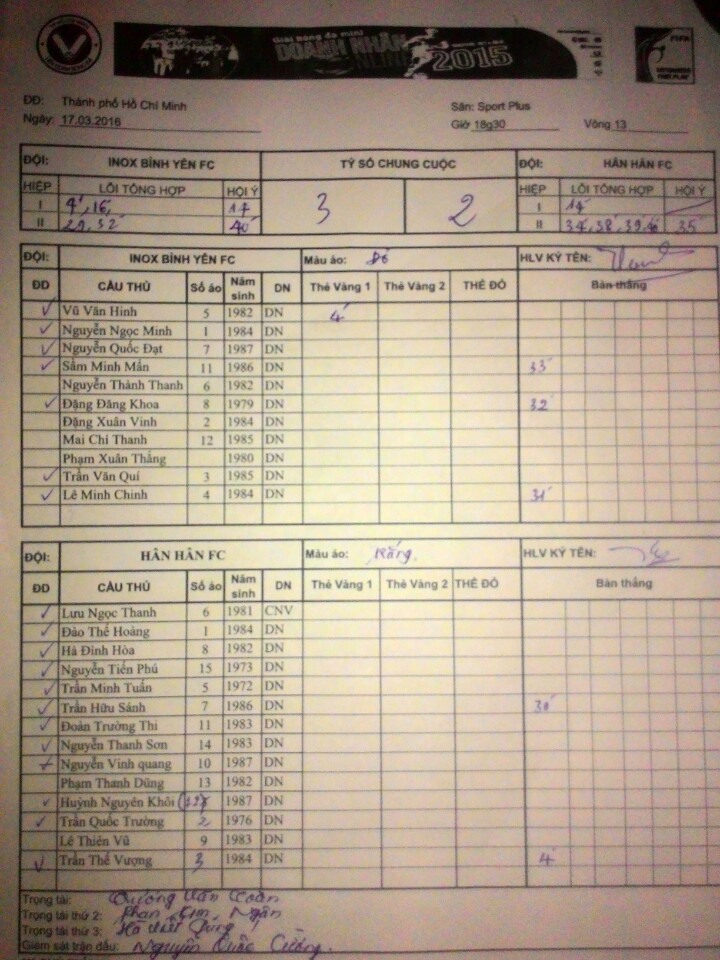 Giải bóng đá mini
DOANH NHÂN 2015
FIFA
ĐĐ: Thành phố Hồ Chí Minh Sân: Sport Plus
Ngày: 17.03.2016 Giờ 18g30 Vòng 13
ĐỘI: INOX BÌNH YÊN FC TỶ SỐ CHUNG CUỘC ĐỘI: HÂN HÂN FC
HIỆP LỖI TỔNG HỢP HỘI Ý 3 2 HIỆP LỖI TỔNG HỢP HỘI Ý
I 17 I 14'
II 29, 32' 40' II 34, 38', 35'
ĐỘI: INOX BÌNH YÊN FC Màu áo: Đỏ HLV KÝ TÊN:
ĐD CẦU THỦ Số áo Năm sinh DN Thẻ Vàng 1 Thẻ Vàng 2 THẺ ĐỎ Bàn thắng
✓ Vũ Văn Hinh 5 1982 DN 4'
✓ Nguyễn Ngọc Minh 1 1984 DN
✓ Nguyễn Quốc Đạt 7 1987 DN
✓ Sầm Minh Mẫn 11 1986 DN 33'
Nguyễn Thành Thanh 6 1982 DN
✓ Đặng Đăng Khoa 8 1979 DN 32'
Đặng Xuân Vinh 2 1984 DN
Mai Chí Thanh 12 1985 DN
Phạm Xuân Thắng 1980 DN
✓ Trần Văn Quí 3 1985 DN
✓ Lê Minh Chinh 4 1984 DN 31'
ĐỘI: HÂN HÂN FC Màu áo: HLV KÝ TÊN:
ĐD CẦU THỦ Số áo Năm sinh DN Thẻ Vàng 1 Thẻ Vàng 2 THẺ ĐỎ Bàn thắng
✓ Lưu Ngọc Thanh 6 1981 CNV
✓ Đào Thế Hoàng 1 1984 DN
✓ Hà Đình Hòa 8 1982 DN
✓ Nguyễn Tiến Phú 15 1973 DN
✓ Trần Minh Tuấn 5 1972 DN
✓ Trần Hữu Sánh 7 1986 DN 30'
✓ Đoàn Trường Thi 11 1983 DN
✓ Nguyễn Thanh Sơn 14 1983 DN
✓ Nguyễn Vinh quang 10 1987 DN
Phạm Thanh Dũng 13 1982 DN
✓ Huỳnh Nguyên Khôi 1987 DN
✓ Trần Quốc Trường 2 1976 DN
Lê Thiên Vũ 9 1983 DN
✓ Trần Thế Vượng 3 1984 DN 4'
Trọng tài: Dương Văn
Trọng tài thứ 2: Phan Kim Ngân
Trọng tài thứ 3:
Giám sát trận đấu: Nguyễn Quốc Cường.